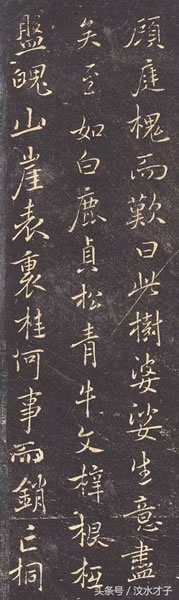 顧庭槐而歎曰此樹婆娑生意盡
矣至如白鹿貞松青牛文梓根柢
盤魄山崖表裏桂何事而銷亡桐
头条号/汶水才子